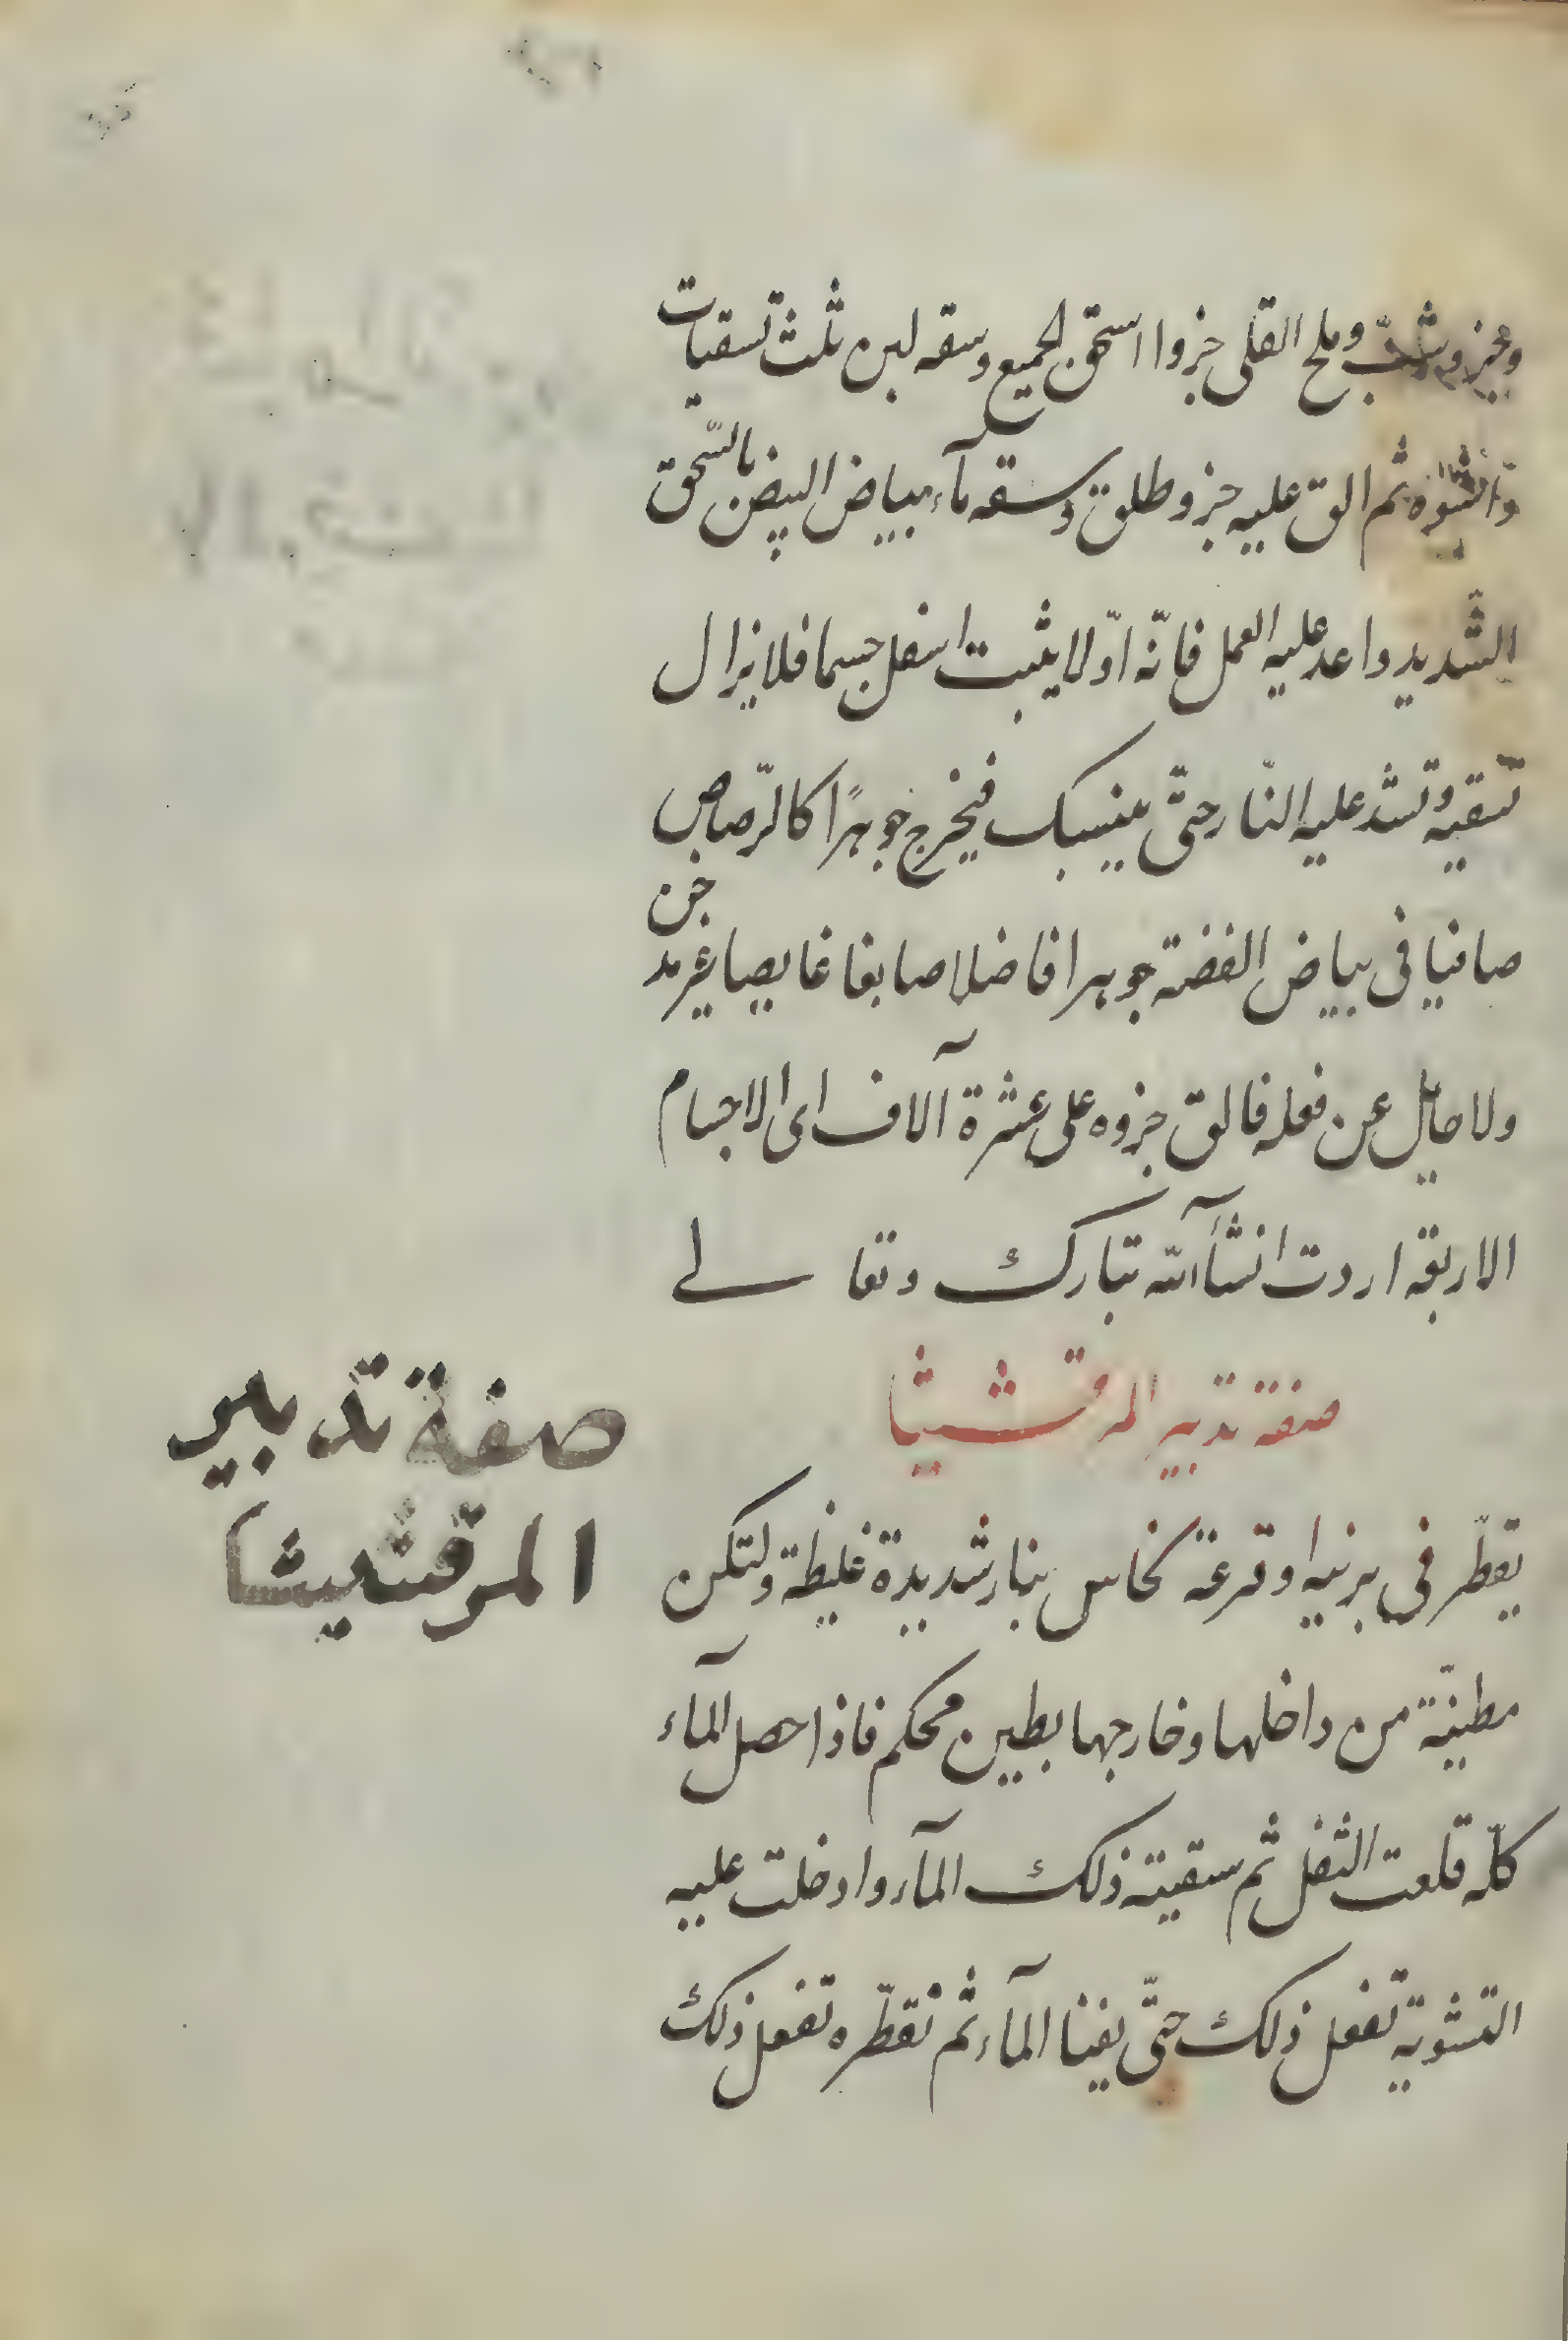 وجزو شب وملح القلى جزوا اسحق الجميع وسقه لبن ثلث تسقيات
واشوه ثم الق عليه جزو طلق وسقه مآء بياض البيض بالسّحق
الشّديد واعد عليه العمل فانّه اوّلا يثبت اسفل جسما فلا يزال
تسقيه وتشد عليه النّار حتّى ينسبك فيخرج جوهرًا كالرّصاص
صافيا فى بياض الفضة جوهرا فاضلا صابغا غايصا غير مدخن
ولا حايل عن فعله فالق جزوه على عشرة آلاف اى الاجسام
الاربعة اردت انشآالله تبارك وتعالى
صفة تدبير المرقشيثا
صفة تدبير
المرقشيشا
يقطّر فى برنيه او قرعة نحاس بنار شديدة غليظة ولتكن
مطيّنة من داخلها وخارجها بطين محكم فاذا حصل المآء
كلّه قلعت الثفل ثم سقيته ذلك المآء وادخلت عليه
التشوية تفعل ذلك حتّى يفنا المآء ثم تقطّره تفعل ذلك